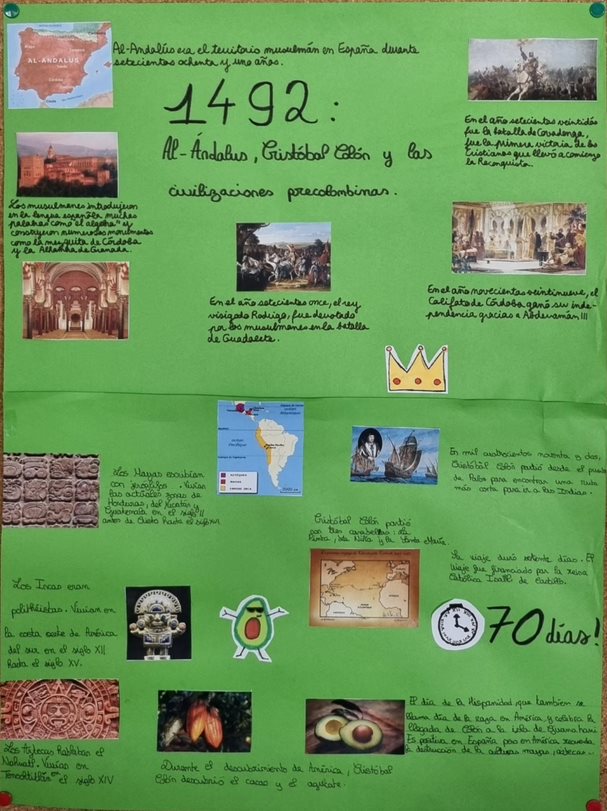 Al-Andalús era el territorio musulmán en España durante
setecientos ochenta y uno años.
AL-ANDALUS
1492:
Al-Ándalus, Cristóbal Colón y las
civilizaciones precolombinas.
En el año setecientos veintidós
fue la batalla de Covadonga,
fue la primera victoria de los
Cristianos que llevó a comienzo
la Reconquista.
Los musulmanes introdujeron
en la lengua española muchas
palabras como el algebra" y
construyeron numerosos monumentos
como la mezquita de Córdoba
y la Alhambra de Granada.
En el año setecientos once, el rey
visigodo Rodrigo, fue derrotado
por los musulmanes en la batalla
de Guadalete.
En el año novecientos veintinueve, el
Califato de Córdoba ganó su inde-
pendencia gracias a Abderramán III
Los Mayas escribían
con jeroglifos. Vivían
las actuales zonas de
Honduras, del Yucatán y
Guatemala en el siglo II
antes de Cristo hasta el siglo XVI
En mil cuatrocientos noventa y dos,
Cristóbal Colón partió desde el puerto
de Palos para encontrar una ruta
más corta para ir a las Indias.
Cristóbal Colón partió
con tres carabelas: La
Pinta, la Niña y la Santa María.
Su viaje duró setenta días. El
viaje fue financiado por la reina
Católica de Castilla.
70 días!
Los Incas eran
politeístas. Vivían en
la costa oeste de América
del sur en el siglo XII
hasta el siglo XV.
Los Aztecas hablaban el
Nahuatl. Vivían en
el siglo XIV
Durante el descubrimiento de América, Cristóbal
Colón descubrió el cacao y el aguacate.
El día de la Hispanidad, que tambien se
llama día de la raza en América, y celebra la
llegada de Colón a la isla de Guanahani.
Es festivo en España pero en América recuerda
la destrucción de la cultura mayas, aztecas...